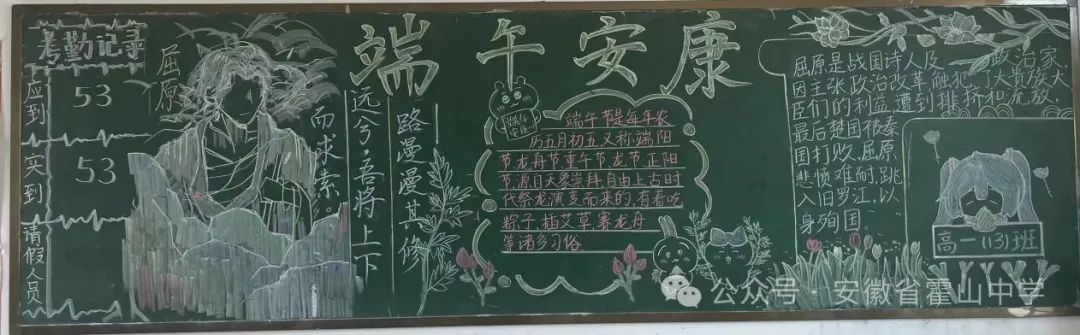 考勤记录
应到 53
实到 53
请假人员
屈原
端午安康
路漫漫其修
远兮,吾将上下
而求索
端午安康
端午节是每年农
历五月初五又称端阳
节龙舟节重午节龙节正阳
节,源自天象崇拜,自由上古时
代祭龙演变而来的,有着吃
粽子,插艾草,赛龙舟
等诸多习俗
屈原是战国诗人及政治家,
因主张政治改革触犯了大贵族大
臣们的利益,遭到排挤和流放,
最后楚国被秦
国打败,屈原
悲愤难耐,跳
入汨罗江,以
身殉国.
高一(13)班
公众号·安徽省霍山中学